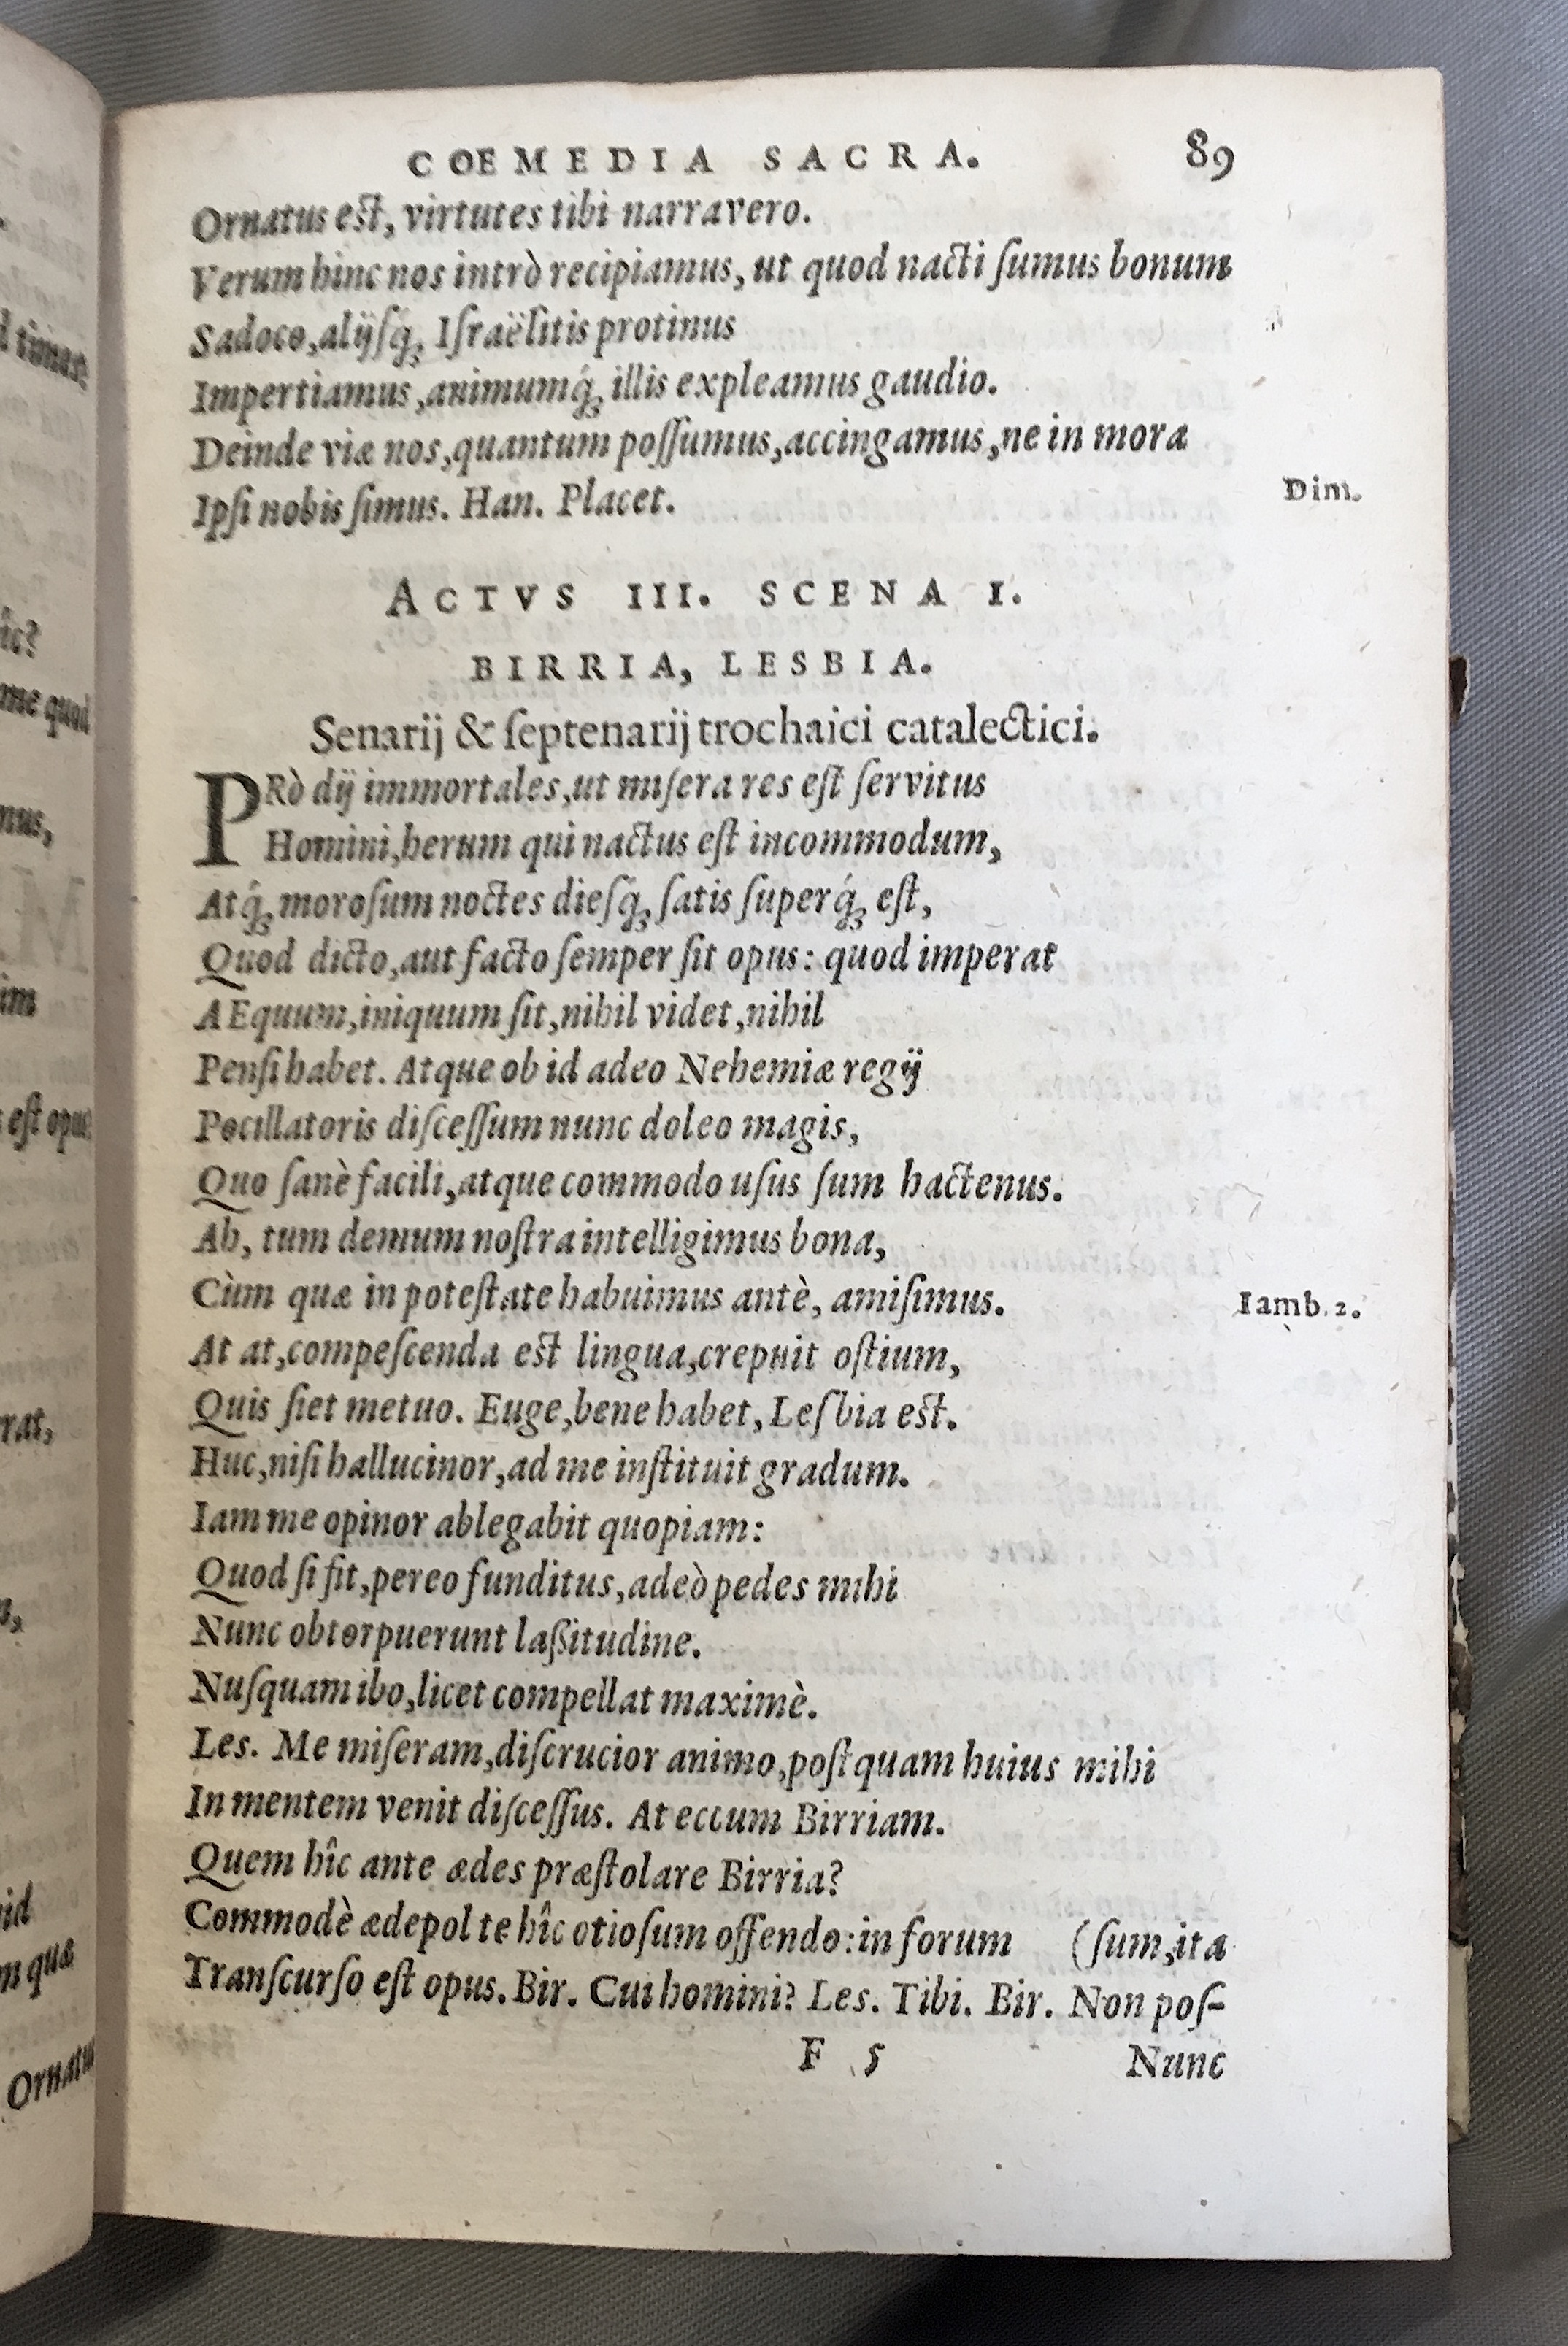 COEMEDIA SACRA. 89
Ornatus est, virtutes tibi narravero.
Verum hinc nos intrò recipiamus, ut quod nacti ſumus bonum
Sadoco, alijſq́ꝫ Iſraëlitis protinus
Impertiamus, animumq́ꝫ illis expleamus gaudio.
Deinde viæ nos, quantum poſſumus, accingamus, ne in mora
Ipſi nobis ſimus. Han. Placet. Dim.
ACTVS III. SCENA I.
BIRRIA, LESBIA.
Senarij & ſeptenarij trochaici catalectici.
PRò dij immortales, ut miſera res eſt ſervitus
Homini, herum qui nactus eſt incommodum,
Atq́ꝫ moroſum noctes dieſq́ꝫ ſatis ſuperq́ꝫ eſt,
Quod dicto, aut facto ſemper ſit opus: quod imperat
AEquum, iniquum ſit, nihil videt, nihil
Penſi habet. Atque ob id adeo Nehemiæ regij
Pocillatoris diſceſſum nunc doleo magis,
Quo ſanè facili, atque commodo uſus ſum hactenus.
Ah, tum demum noſtra intelligimus bona,
Cùm quæ in poteſtate habuimus antè, amiſimus. Iamb. 2.
At at, compeſcenda est lingua, crepuit oſtium,
Quis ſiet metuo. Euge, bene habet, Leſbia est.
Huc, niſi hallucinor, ad me inſtituit gradum.
Iam me opinor ablegabit quopiam:
Quod ſi fit, pereo funditus, adeò pedes mihi
Nunc obtorpuerunt laßitudine.
Nuſquam ibo, licet compellat maximè.
Les. Me miſeram, diſcrucior animo, poſtquam huius mihi
In mentem venit diſceſſus. At eccum Birriam.
Quem hîc ante ædes præſtolare Birria?
Commodè ædepol te hîc otioſum offendo: in forum (ſum, ita
Tranſcurſo eſt opus. Bir. Cui homini? Les. Tibi. Bir. Non poſ-
F 5 Nunc